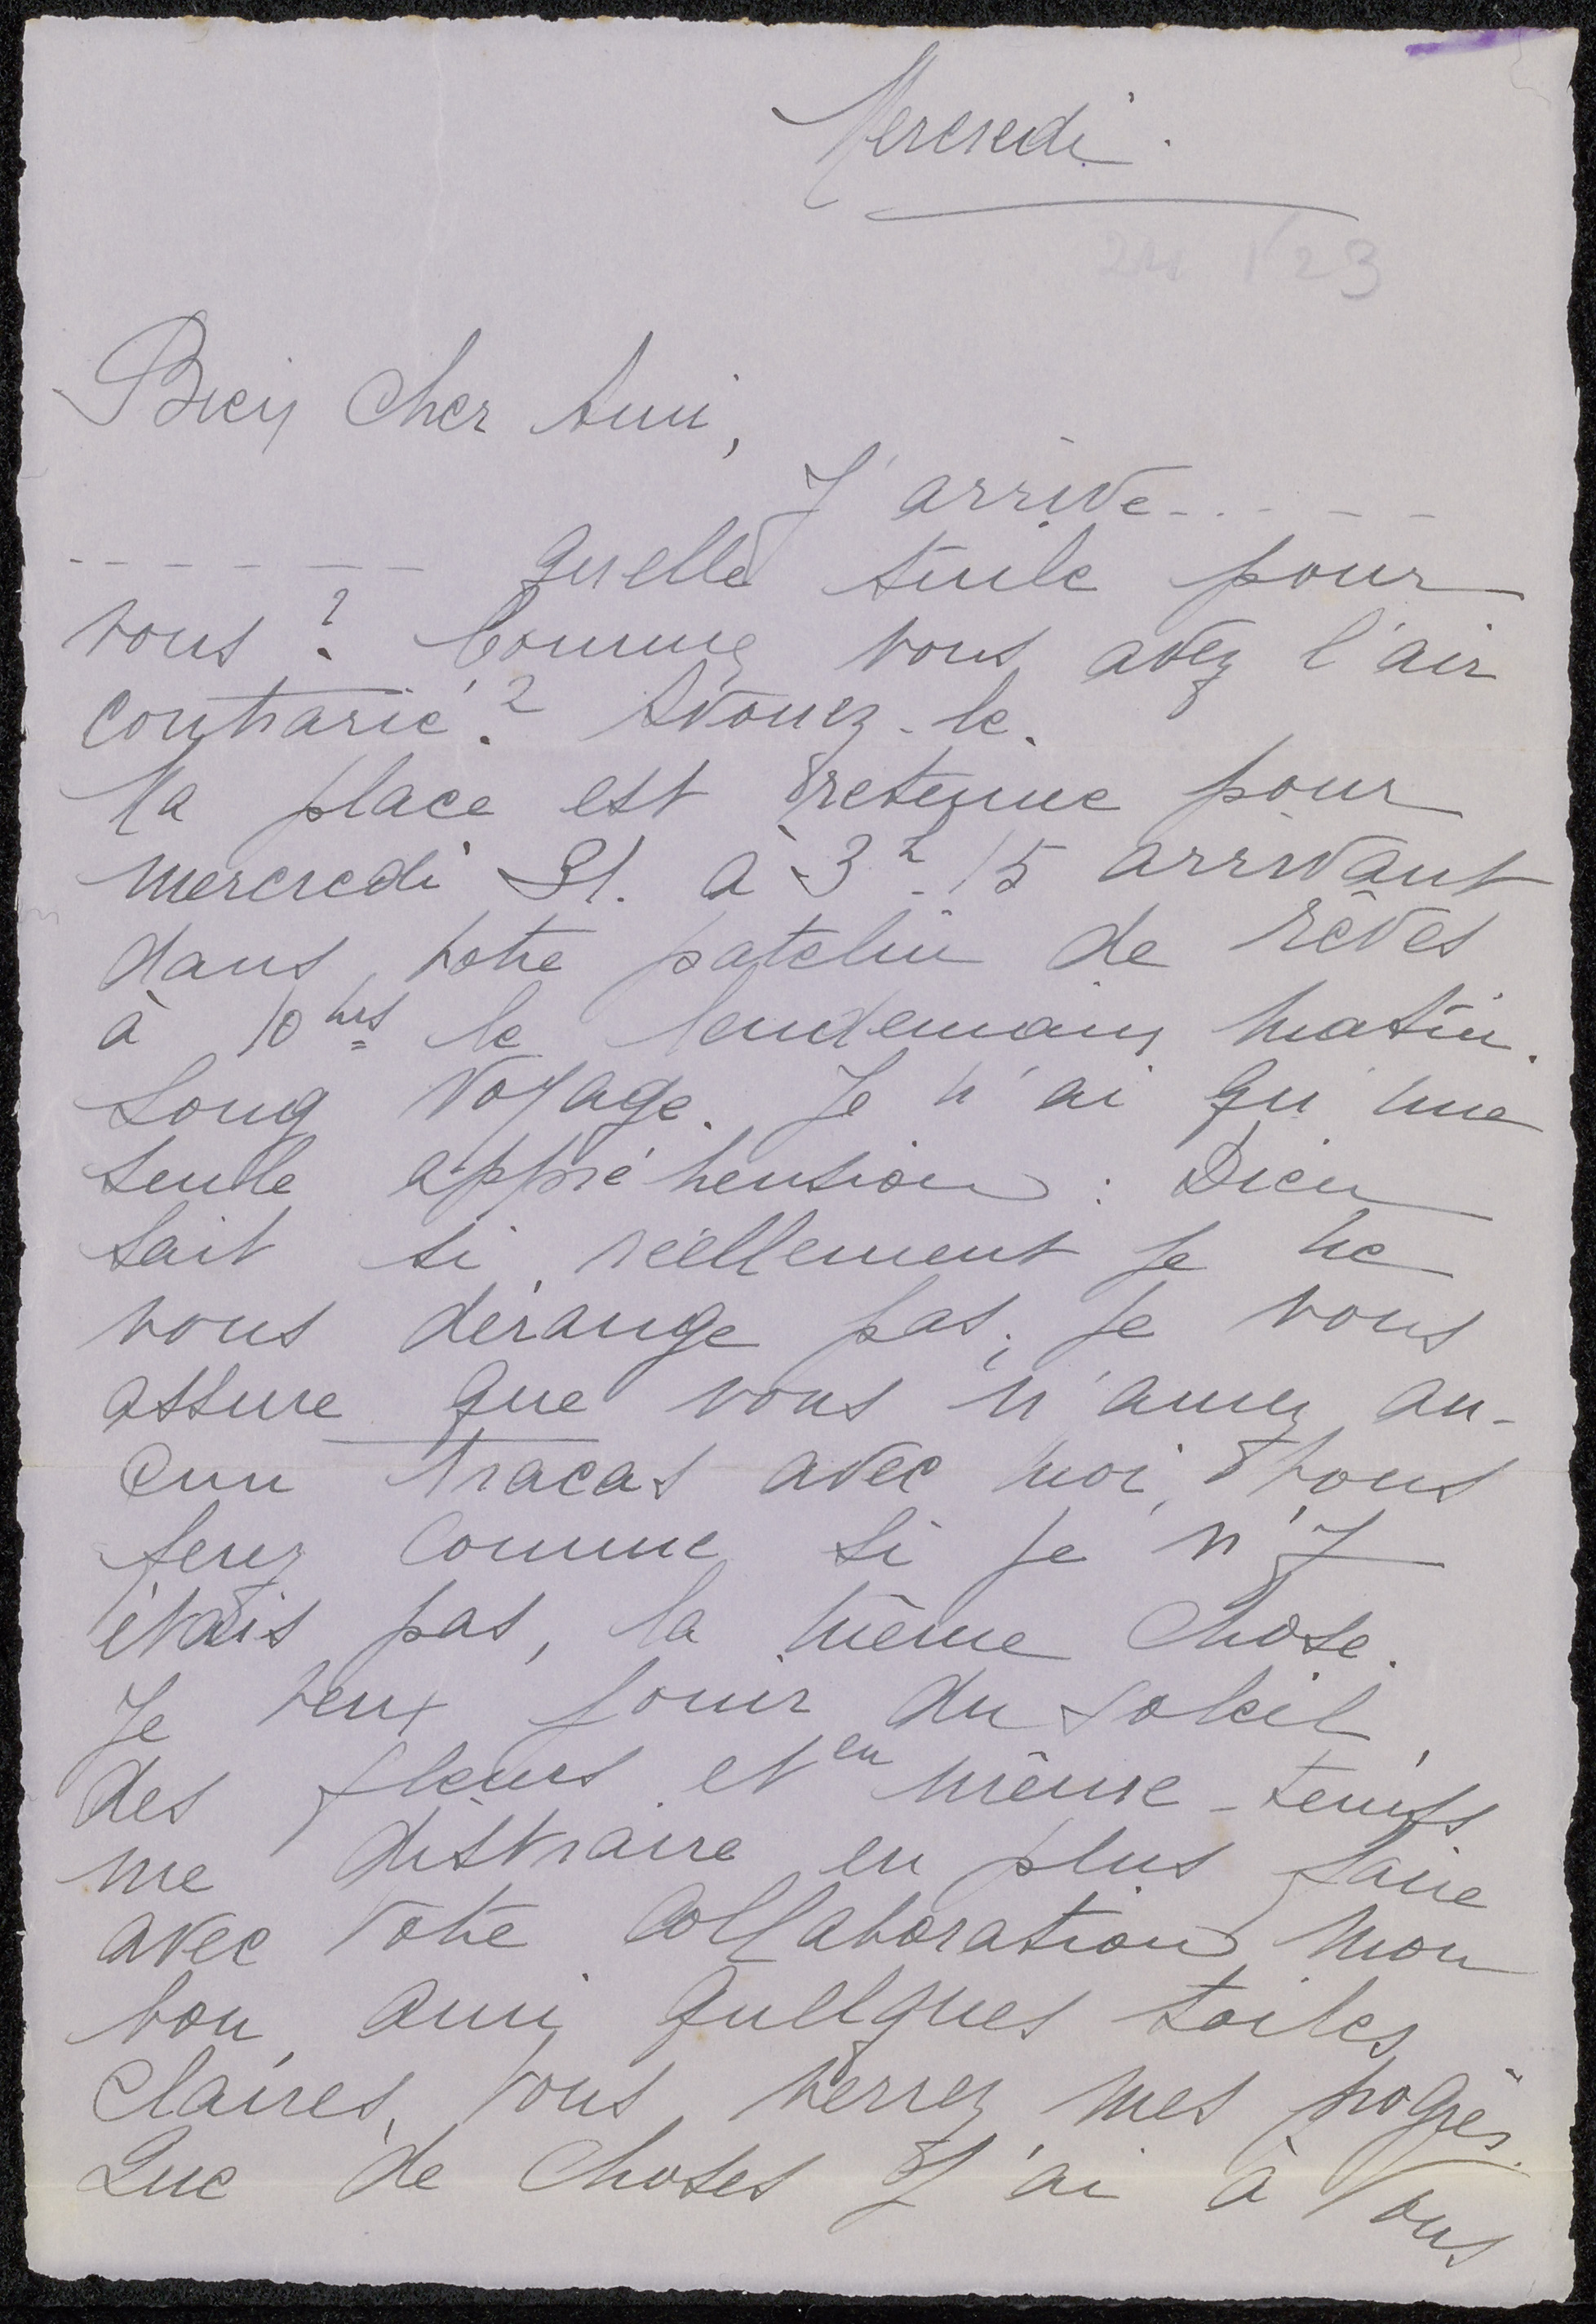 Mercredi.
Bien Cher Ami,
J'arrive - - - - - -
- - - - - - - quelle tuile pour
vous ? Comme vous avez l'air
contrarié ? Avouez-le.
Ma place est retenue pour
mercredi 31. à 3h. 15 arrivant
dans votre patelin de rêves
à 10hrs le lendemain matin.
Long voyage. Je n'ai qu'une
seule appréhension : Dieu
sait si réellement je ne
vous dérange pas, je vous
assure que vous n'aurez au-
cun tracas avec moi, vous
ferez comme si je n'y
étais pas, la même chose.
Je veux jouir du soleil,
des fleurs et en même-temps
me distraire en plus faire
avec votre Collaboration mon
bon ami quelques toiles
claires, vous verrez mes progrès.
Que de choses j'ai à vous